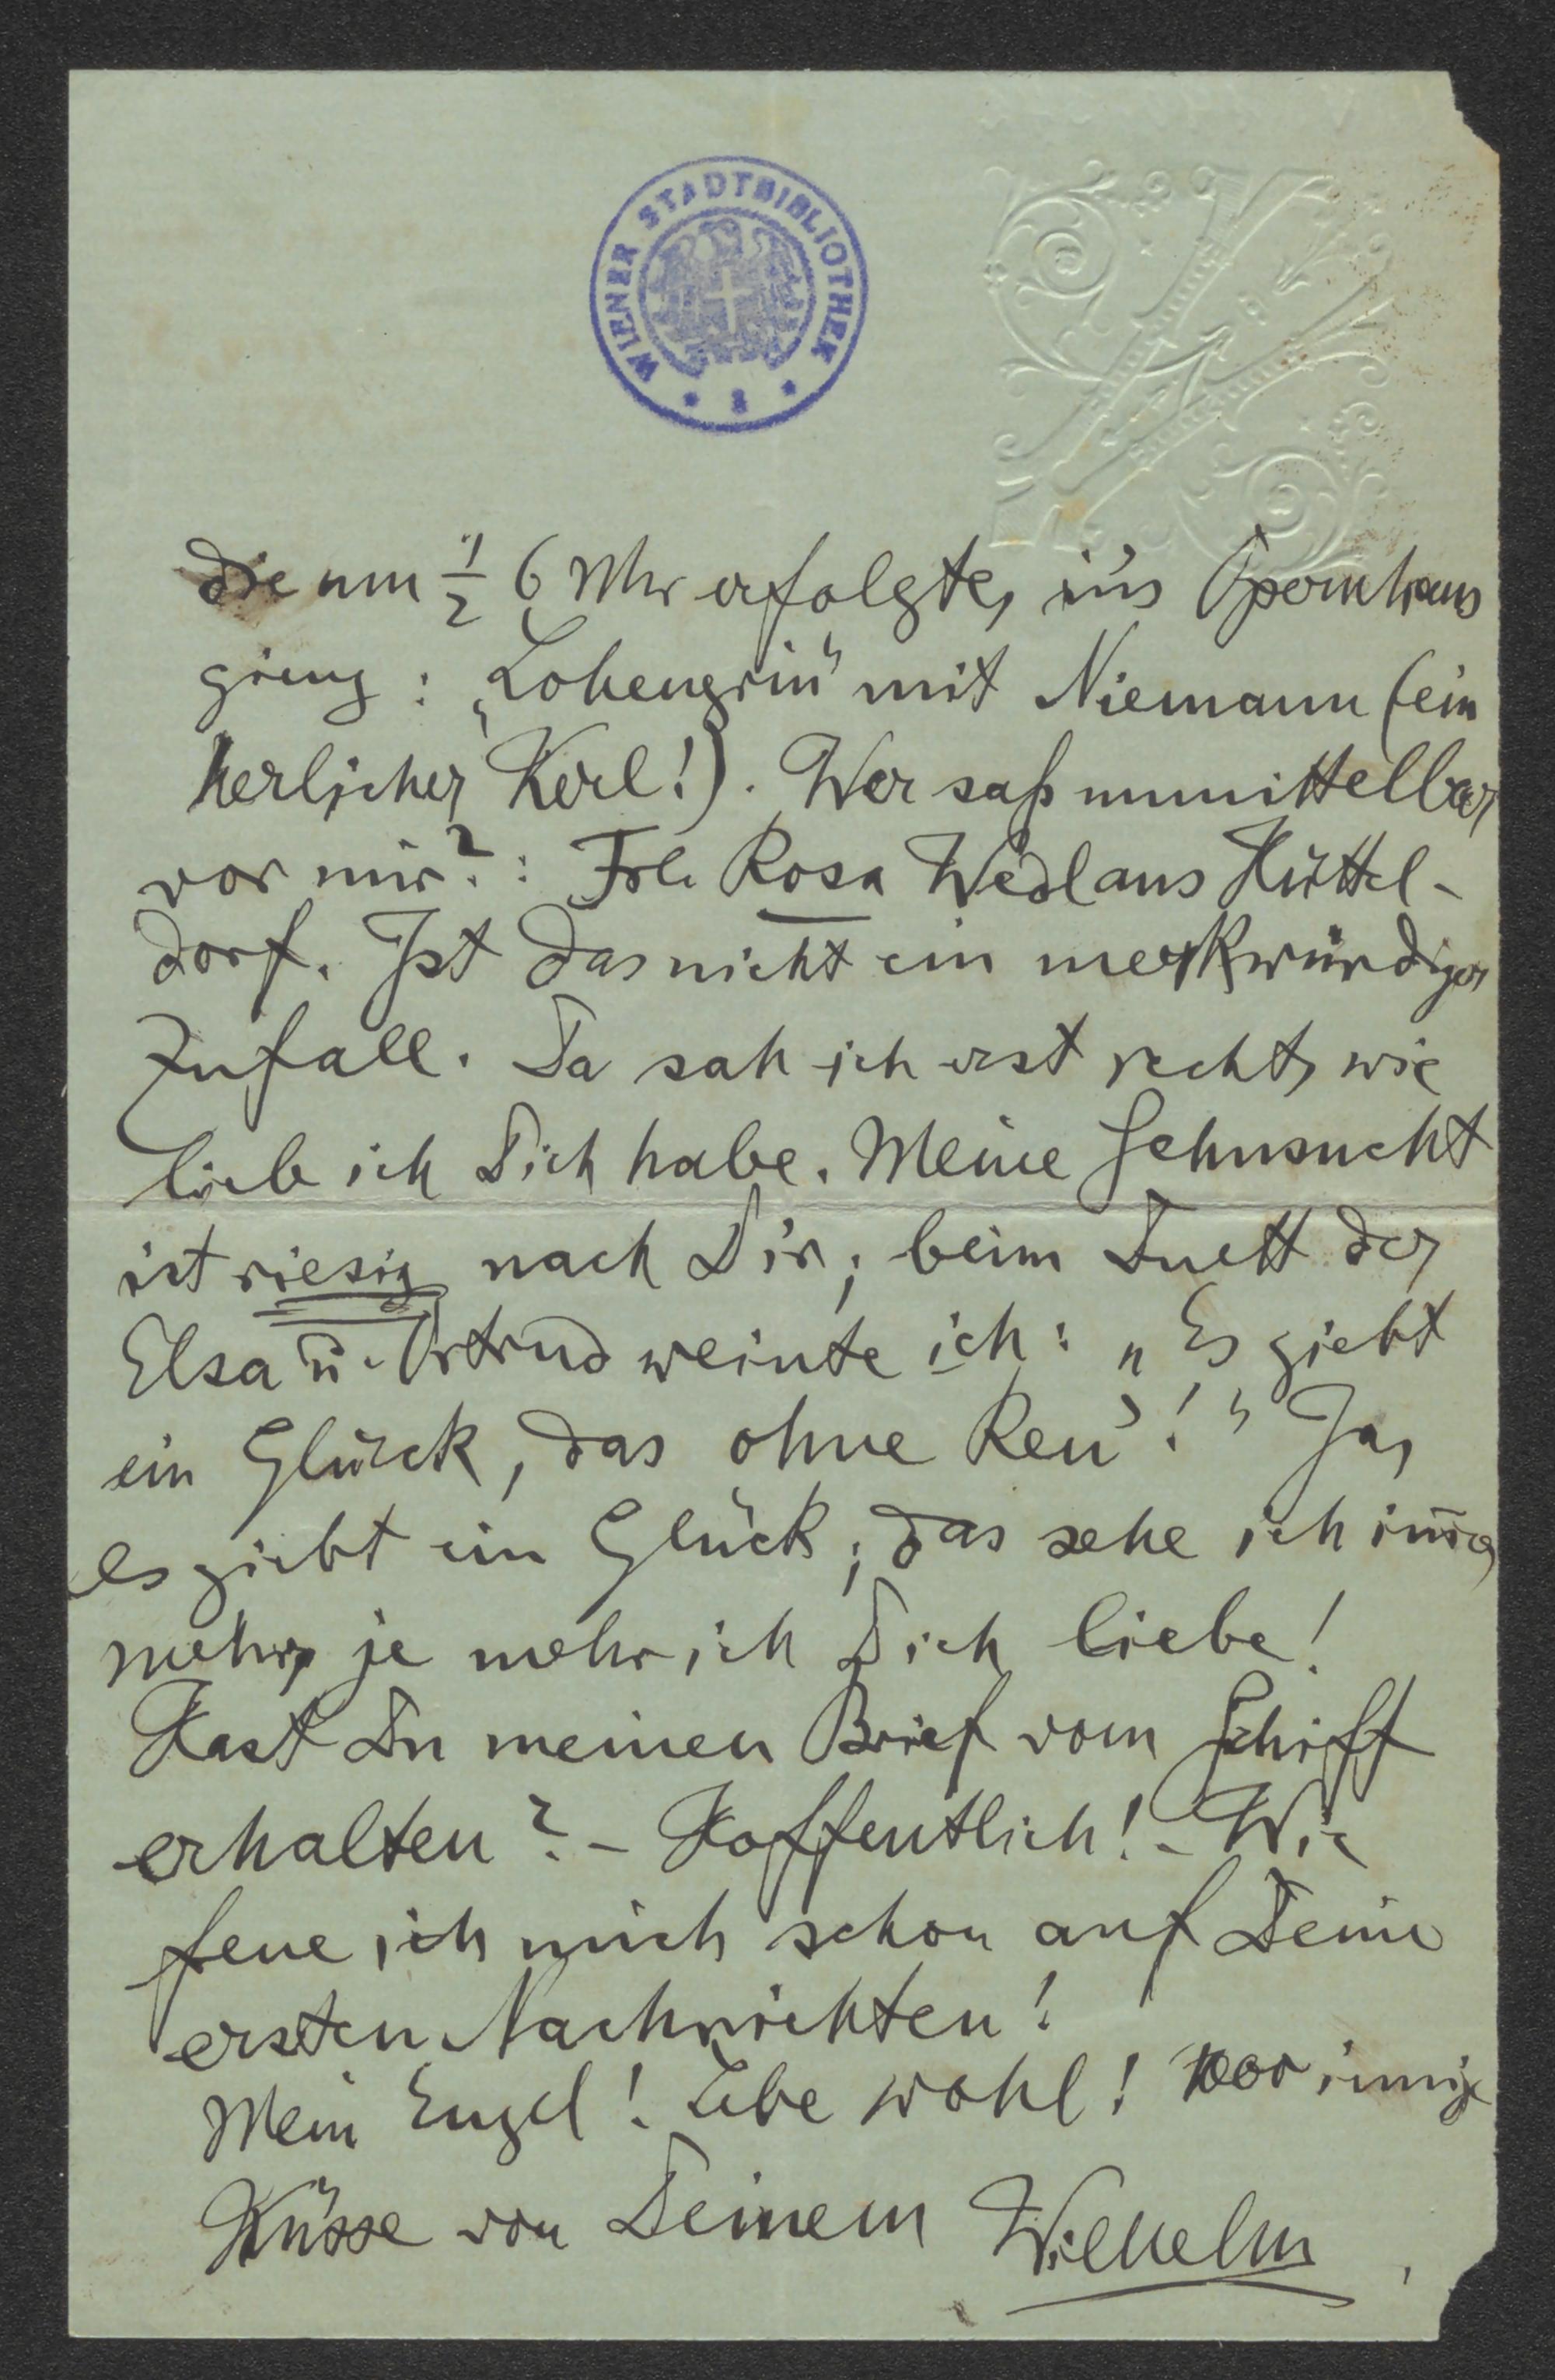 WIENER STADTBIBLIOTHEK
die um ½ 6 Uhr erfolgte, in's Opernhaus
gieng: „Lohengrin" mit Niemann (ein
herlicher Kerl!). Wer saß unmittelbar
vor mir?: Frl. Rosa Wedl aus Hüttel-
dorf. Ist das nicht ein merkwürdiger
Zufall. Da sah ich erst recht, wie
lieb ich Dich habe. Meine Sehnsucht
ist riesig nach Dir; beim Duett der
Elsa u. Ortrud weinte ich: „Es giebt
ein Glück, das ohne Reu'!" Ja,
es giebt ein Glück; das sehe ich im̄er
mehr, je mehr ich Dich liebe!
Hast Du meinen Brief vom Schiff
erhalten? – Hoffentlich! – Wie
feue ich mich schon auf Deine
ersten Nachrichten!
Mein Engel! Lebe wohl! 1000 innige
Küsse von Deinem Wilhelm